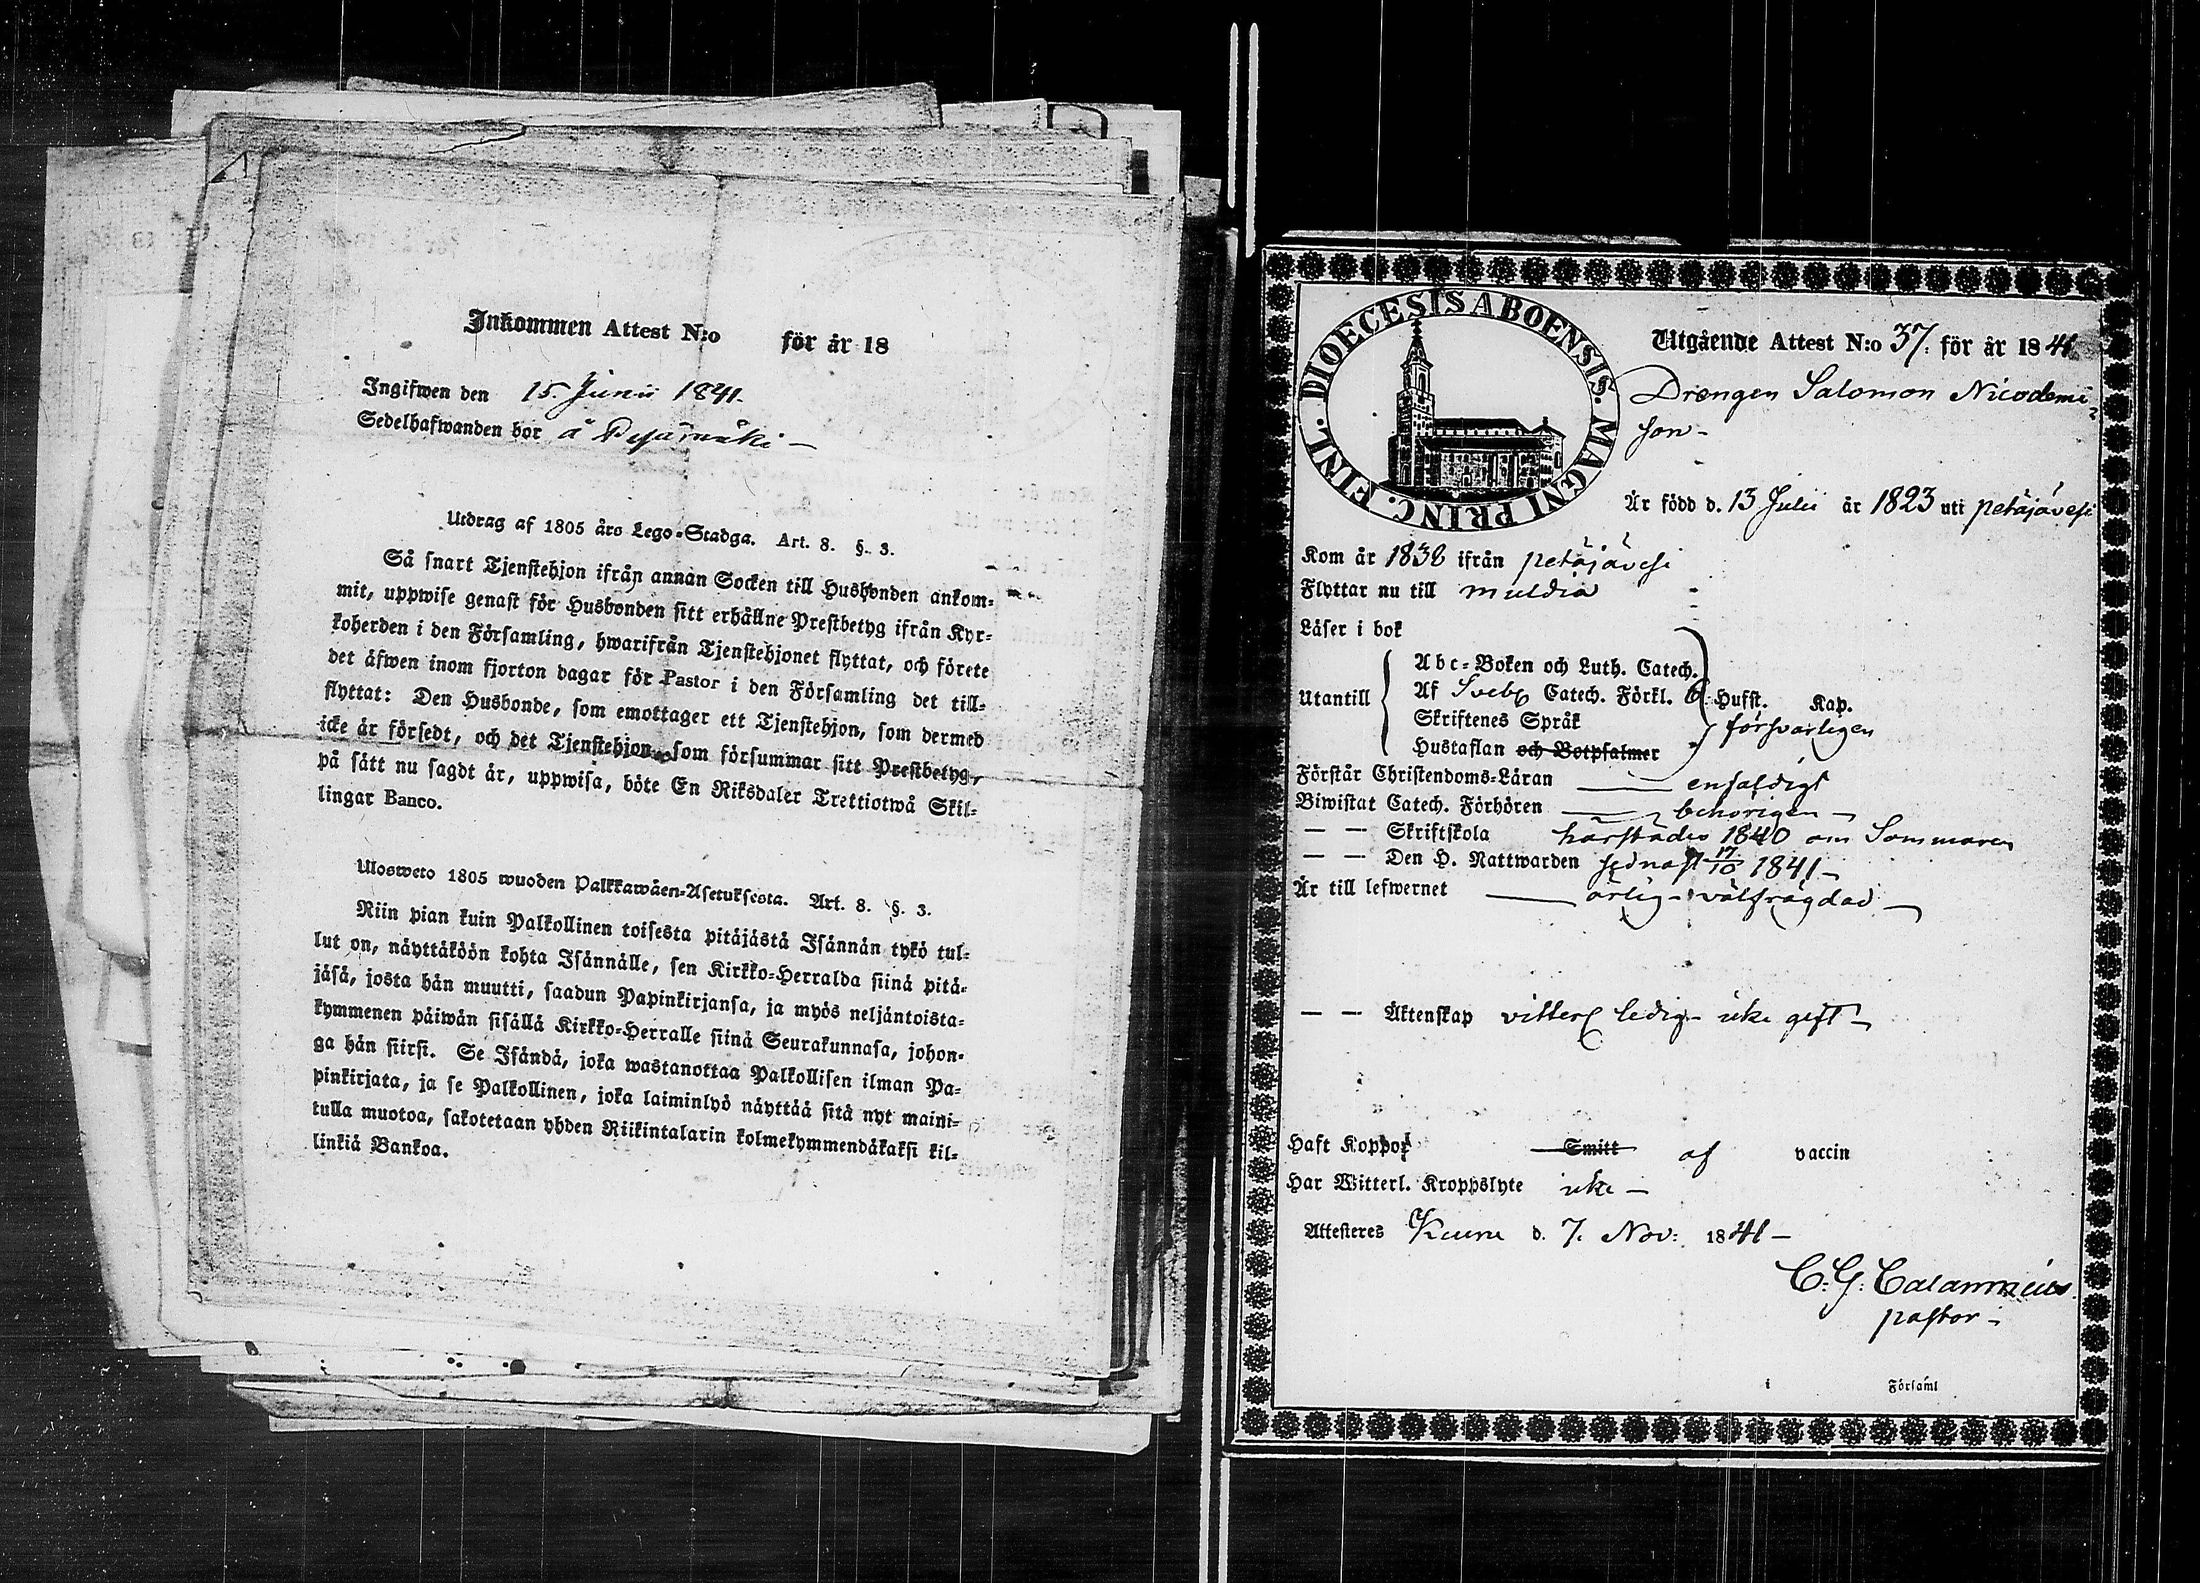 Inkommen Attest N:o för år 18
Ingifwen den 15. Junii 1841.
Sedelhafwanden bor å
Utdrag af 1805 års Lego-Stadga. Art. 8. §. 3.
Så snart Tjenstehjon ifrån annan Socken till Husbonden ankom-
mit, uppwise genast för Husbonden sitt erhållne Prestbetyg ifrån Kyr-
koherden i den Församling, hwarifrån Tjenstehjonet flyttat, och förete
det äfwen inom fjorton dagar för Pastor i den Församling det till-
flyttat: Den Husbonde, som emottager ett Tjenstehjon, som dermed
icke är försedt, och det Tjenstehjon som försummar sitt Prestbetyg,
på sätt nu sagdt är, uppwisa, böte En Riksdaler Trettiotwå Skil-
lingar Banco.
Ulosweto 1805 wuoden Palkkawäen-Asetuksesta. Art. 8. §. 3.
Niin pian kuin Palkollinen toisesta pitäjästä Isännän tykö tul-
lut on, näyttäköön kohta Isännälle, sen Kirkko-Herralda siinä pitä-
jäsä, josta hän muutti, saadun Papinkirjansa, ja myös neljäntoista-
kymmenen päiwän sisällä Kirkko-Herralle siinä Seurakunnasa, johon-
ga hän siirsi. Se Isändä, joka wastanottaa Palkollisen ilman Pa-
pinkirjata, ja se Palkollinen, joka laiminlyö näyttää sitä nyt maini-
tulla muotoa, sakotetaan yhden Riikintalarin kolmekymmendäkaksi kil-
linkiä Bankoa.
DIOECESIS ABOENSIS. MAGNI PRINC. FINL.
Utgående Attest N:o 37. för år 1841
Drengen Salomon Nicodemi-
son -
Är född d. 13 Julii år 1823 uti petäjävesi
Kom år 1838 ifrån petäjävesi
Flyttar nu till muldia
Läser i bok
Abc-Boken och Luth. Catech.
Utantill Af Sveb. Catech. Förkl. 6 Hufst. Kap.
Skriftenes Språk försvarligen
Hustaflan och Botpsalmer
Förstår Christendoms-Läran enfaldigt
Biwistat Catech. Förhören behörigen -
— — Skriftskola härstädes 1840 om Sommaren
— — Den H. Nattwarden sednast 17/10 1841 -
Är till lefwernet ärlig - välfrägdad -
— — Äktenskap vitterl ledig - icke gift -
Haft Koppor Smitt af vaccin
Har Witterl. Kroppslyte icke -
Attesteres Kuru d. 7. Nov: 1841 -
C. G. Calamnius.
pastor -
i Församl